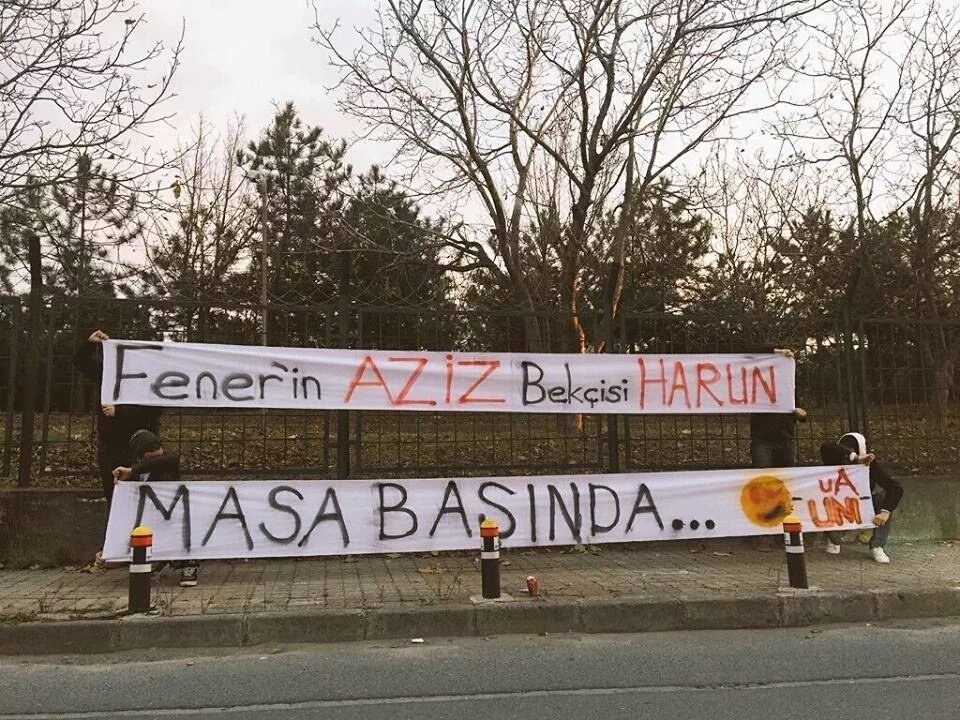 Fener'in AZİZ Bekçisi HARUN
MASA BAŞINDA...
uA
UNI